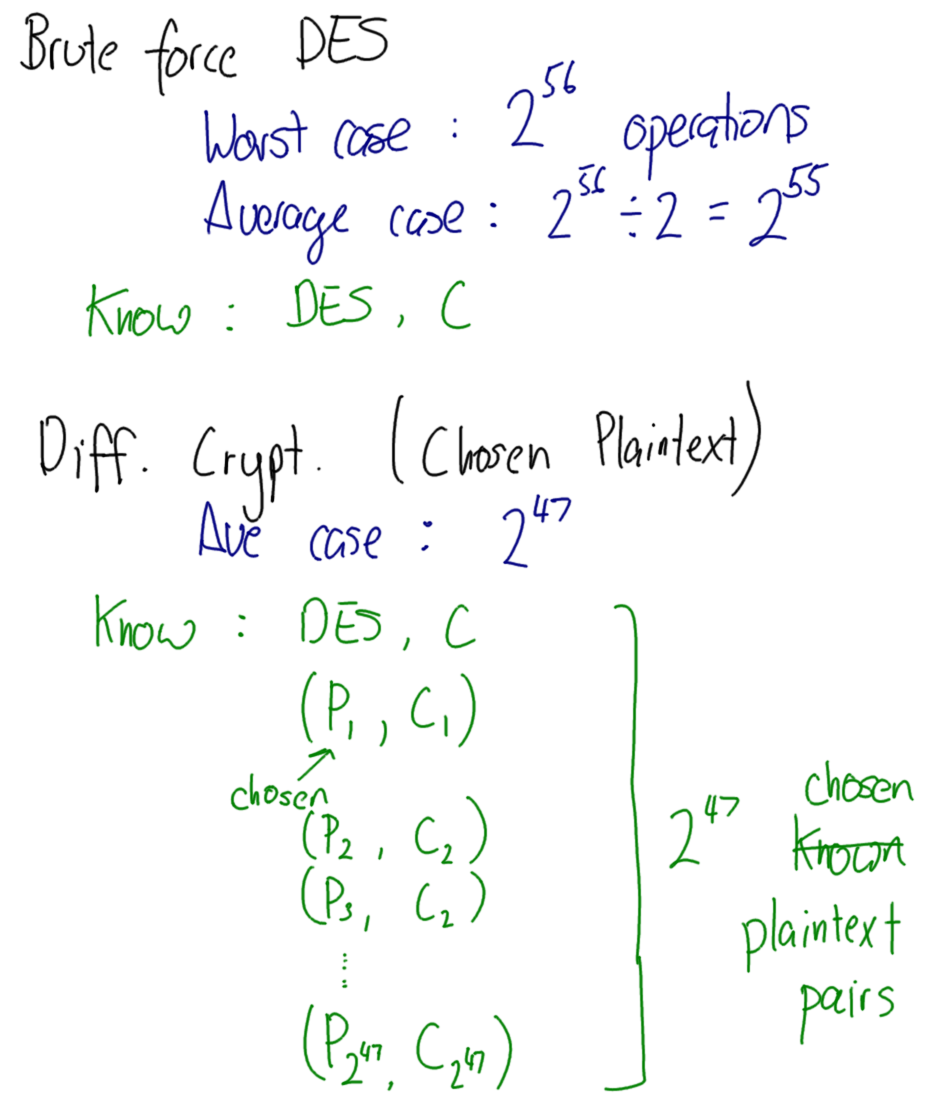 Brute force DES
Worst case : 2^56 operations
Average case : 2^56 ÷ 2 = 2^55
Know : DES, C
Diff. Crypt. (Chosen Plaintext)
Ave case : 2^47
Know : DES, C
(P₁, C₁)
chosen
(P₂, C₂)
(P₃, C₂)
⋮
(P_2^47, C_2^47)
2^47 chosen
Known
plaintext
pairs